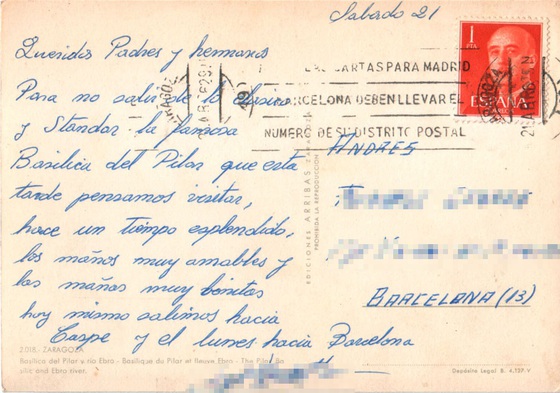 Sabado 21
Queridos Padres y hermanos
Para no salir de lo clasico
y Standar la famosa
Basilica del Pilar que esta
tarde pensamos visitar,
hace un tiempo esplendido,
los maños muy amables y
las mañas muy bonitas
hoy mismo salimos hacia
Caspe y el lunes hacia Barcelona
1
PTA
ESPAÑA
LAS CARTAS PARA MADRID
BARCELONA DEBEN LLEVAR EL
NUMERO DE SU DISTRITO POSTAL
ZARAGOZA
ANDRES
BARCELONA (13)
EDICIONES ARRIBAS
PROHIBIDA LA REPRODUCCION
2018.- ZARAGOZA
Basílica del Pilar y río Ebro - Basilique du Pilar et fleuve Ebro - The Pilar Ba
silic and Ebro river.
Depósito Legal B. 4.137-V